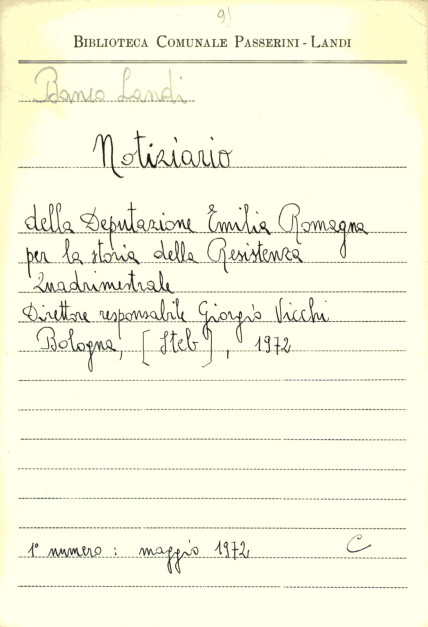 9)
BIBLIOTECA COMUNALE PASSERINI-LANDI
Banco Landi
Notiziario
della Deputazione Emilia Romagna
per la storia della Resistenza
Quadrimestrale
Direttore responsabile Giorgio Vicchi
Bologna, [Steb], 1972
1° numero: maggio 1972 C